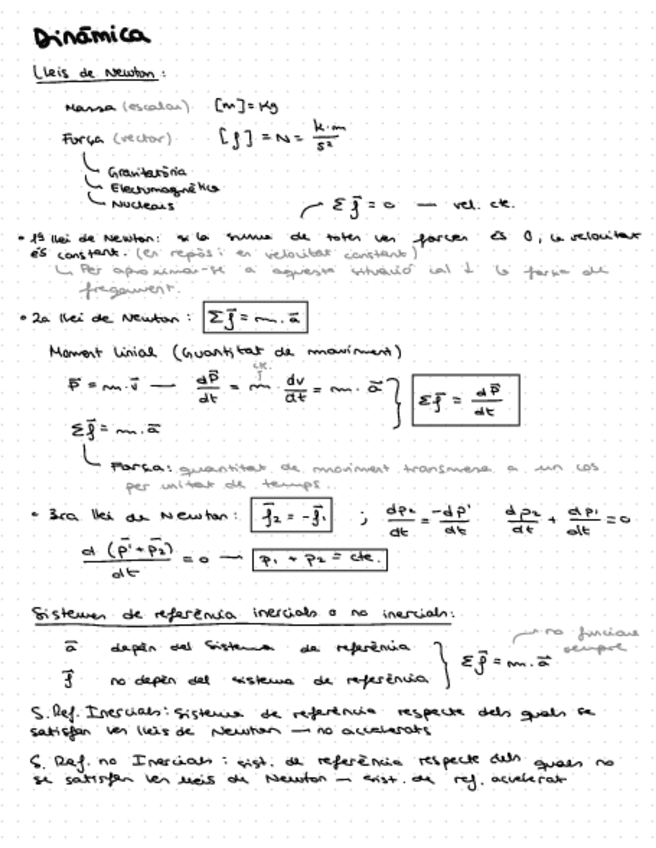 Dinàmica
Lleis de Newton:
Massa (escalar) [m] = Kg
Força (vector) [f] = N = k·m/s²
Gravitatòria
Electromagnètica
Nuclears
Σf⃗ = 0 — vel. cte.
• 1ª llei de Newton: si la suma de totes les forces és 0, la velocitat
és constant. (en repòs i en velocitat constant)
Per aproximar-se a aquesta situació cal ↓ la força de
fregament.
• 2a llei de Newton: Σf⃗ = m·a⃗
Moment linial (Quantitat de moviment)
cte.
p⃗ = m·v⃗ — dp⃗/dt = m · dv/dt = m · a⃗ } Σf⃗ = dp⃗/dt
Σf⃗ = m·a⃗
Força: quantitat de moviment transmesa a un cos
per unitat de temps.
• 3ra llei de Newton: f⃗2 = -f⃗1 ; dp2/dt = -dp'/dt dp2/dt + dp1/dt = 0
d(p⃗'+p⃗2)/dt = 0 — p1 + p2 = cte.
Sistemes de referència inercials o no inercials:
no funciona
sempre
a⃗ depèn del sistema de referència
f⃗ no depèn del sistema de referència } Σf⃗ = m·a⃗
S. Ref. Inercials: sistema de referència respecte dels quals se
satisfan les lleis de Newton — no accelerats
S. Ref. no Inercials: sist. de referència respecte dels quals no
se satisfan les lleis de Newton — sist. de ref. accelerat